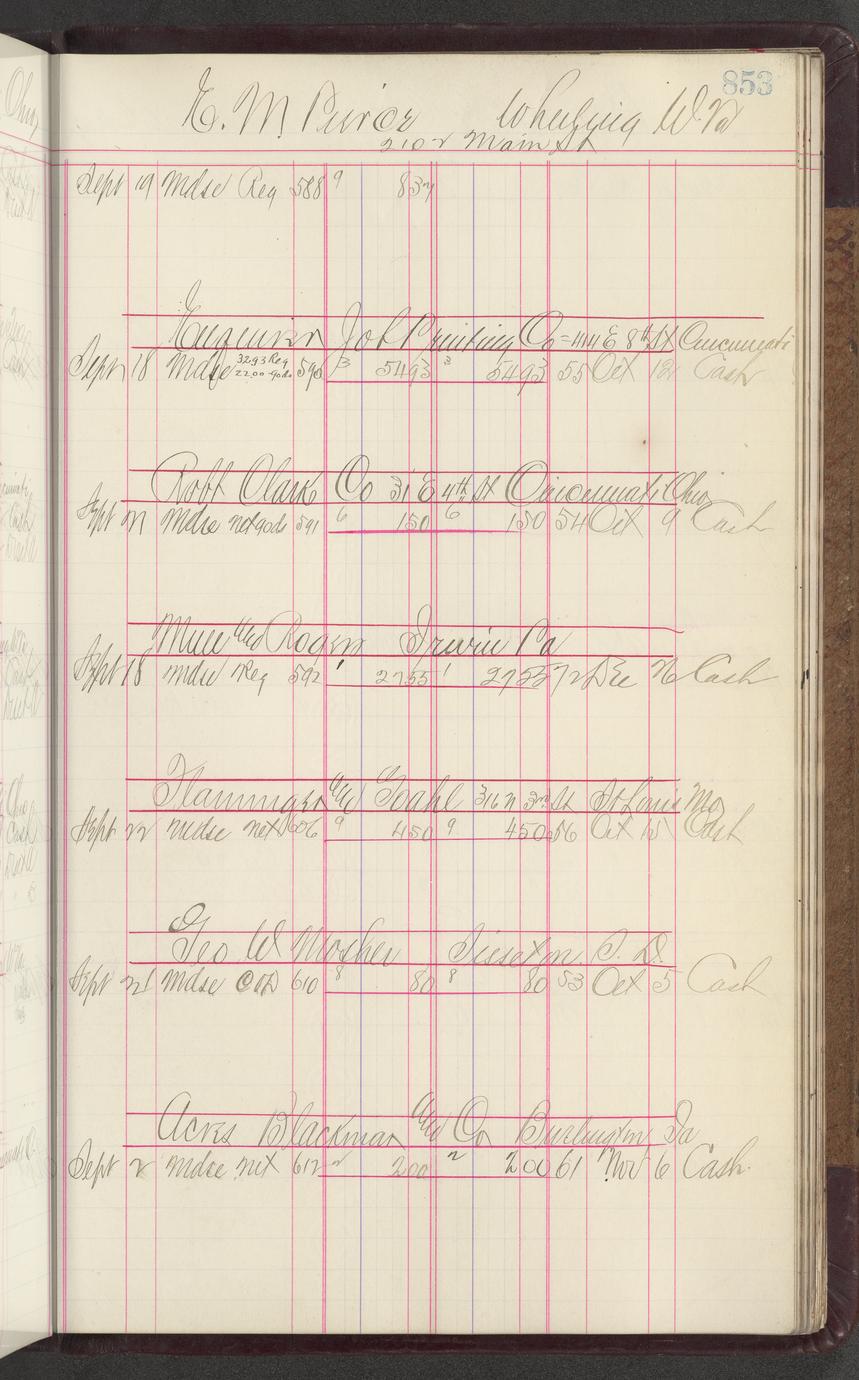 853
E. M. Peirce Wheeling W. Va
2102 Main St
Sept 19 Mdse Reg 588 9 837
Job Printing Co = 414 E 8th St Cincinnati
Sept 18 Mdse 3293 Reg 2200 gods 590 3 5493 3 5493 55 Oct 12 Cash
Robt Clark Co 31 E 4th St Cincinnati Ohio
Sept 21 Mdse net gods 591 6 150 6 150 54 Oct 9 Cash
and Rogers Irwin Pa
Sept 18 Mdse Reg 592 1 2755 1 2755 72 Dec 26 Cash
and 316 N 3rd St St Louis Mo
Sept 22 Mdse net 606 9 450 9 450 56 Oct 15 Cash
Geo W Mosher Sisseton S. D.
Sept 21 Mdse COD 610 8 80 8 80 53 Oct 5 Cash
Acres Blackmar and Co Burlington Ia
Sept 2 Mdse net 612 2 200 2 200 61 Nov 6 Cash.